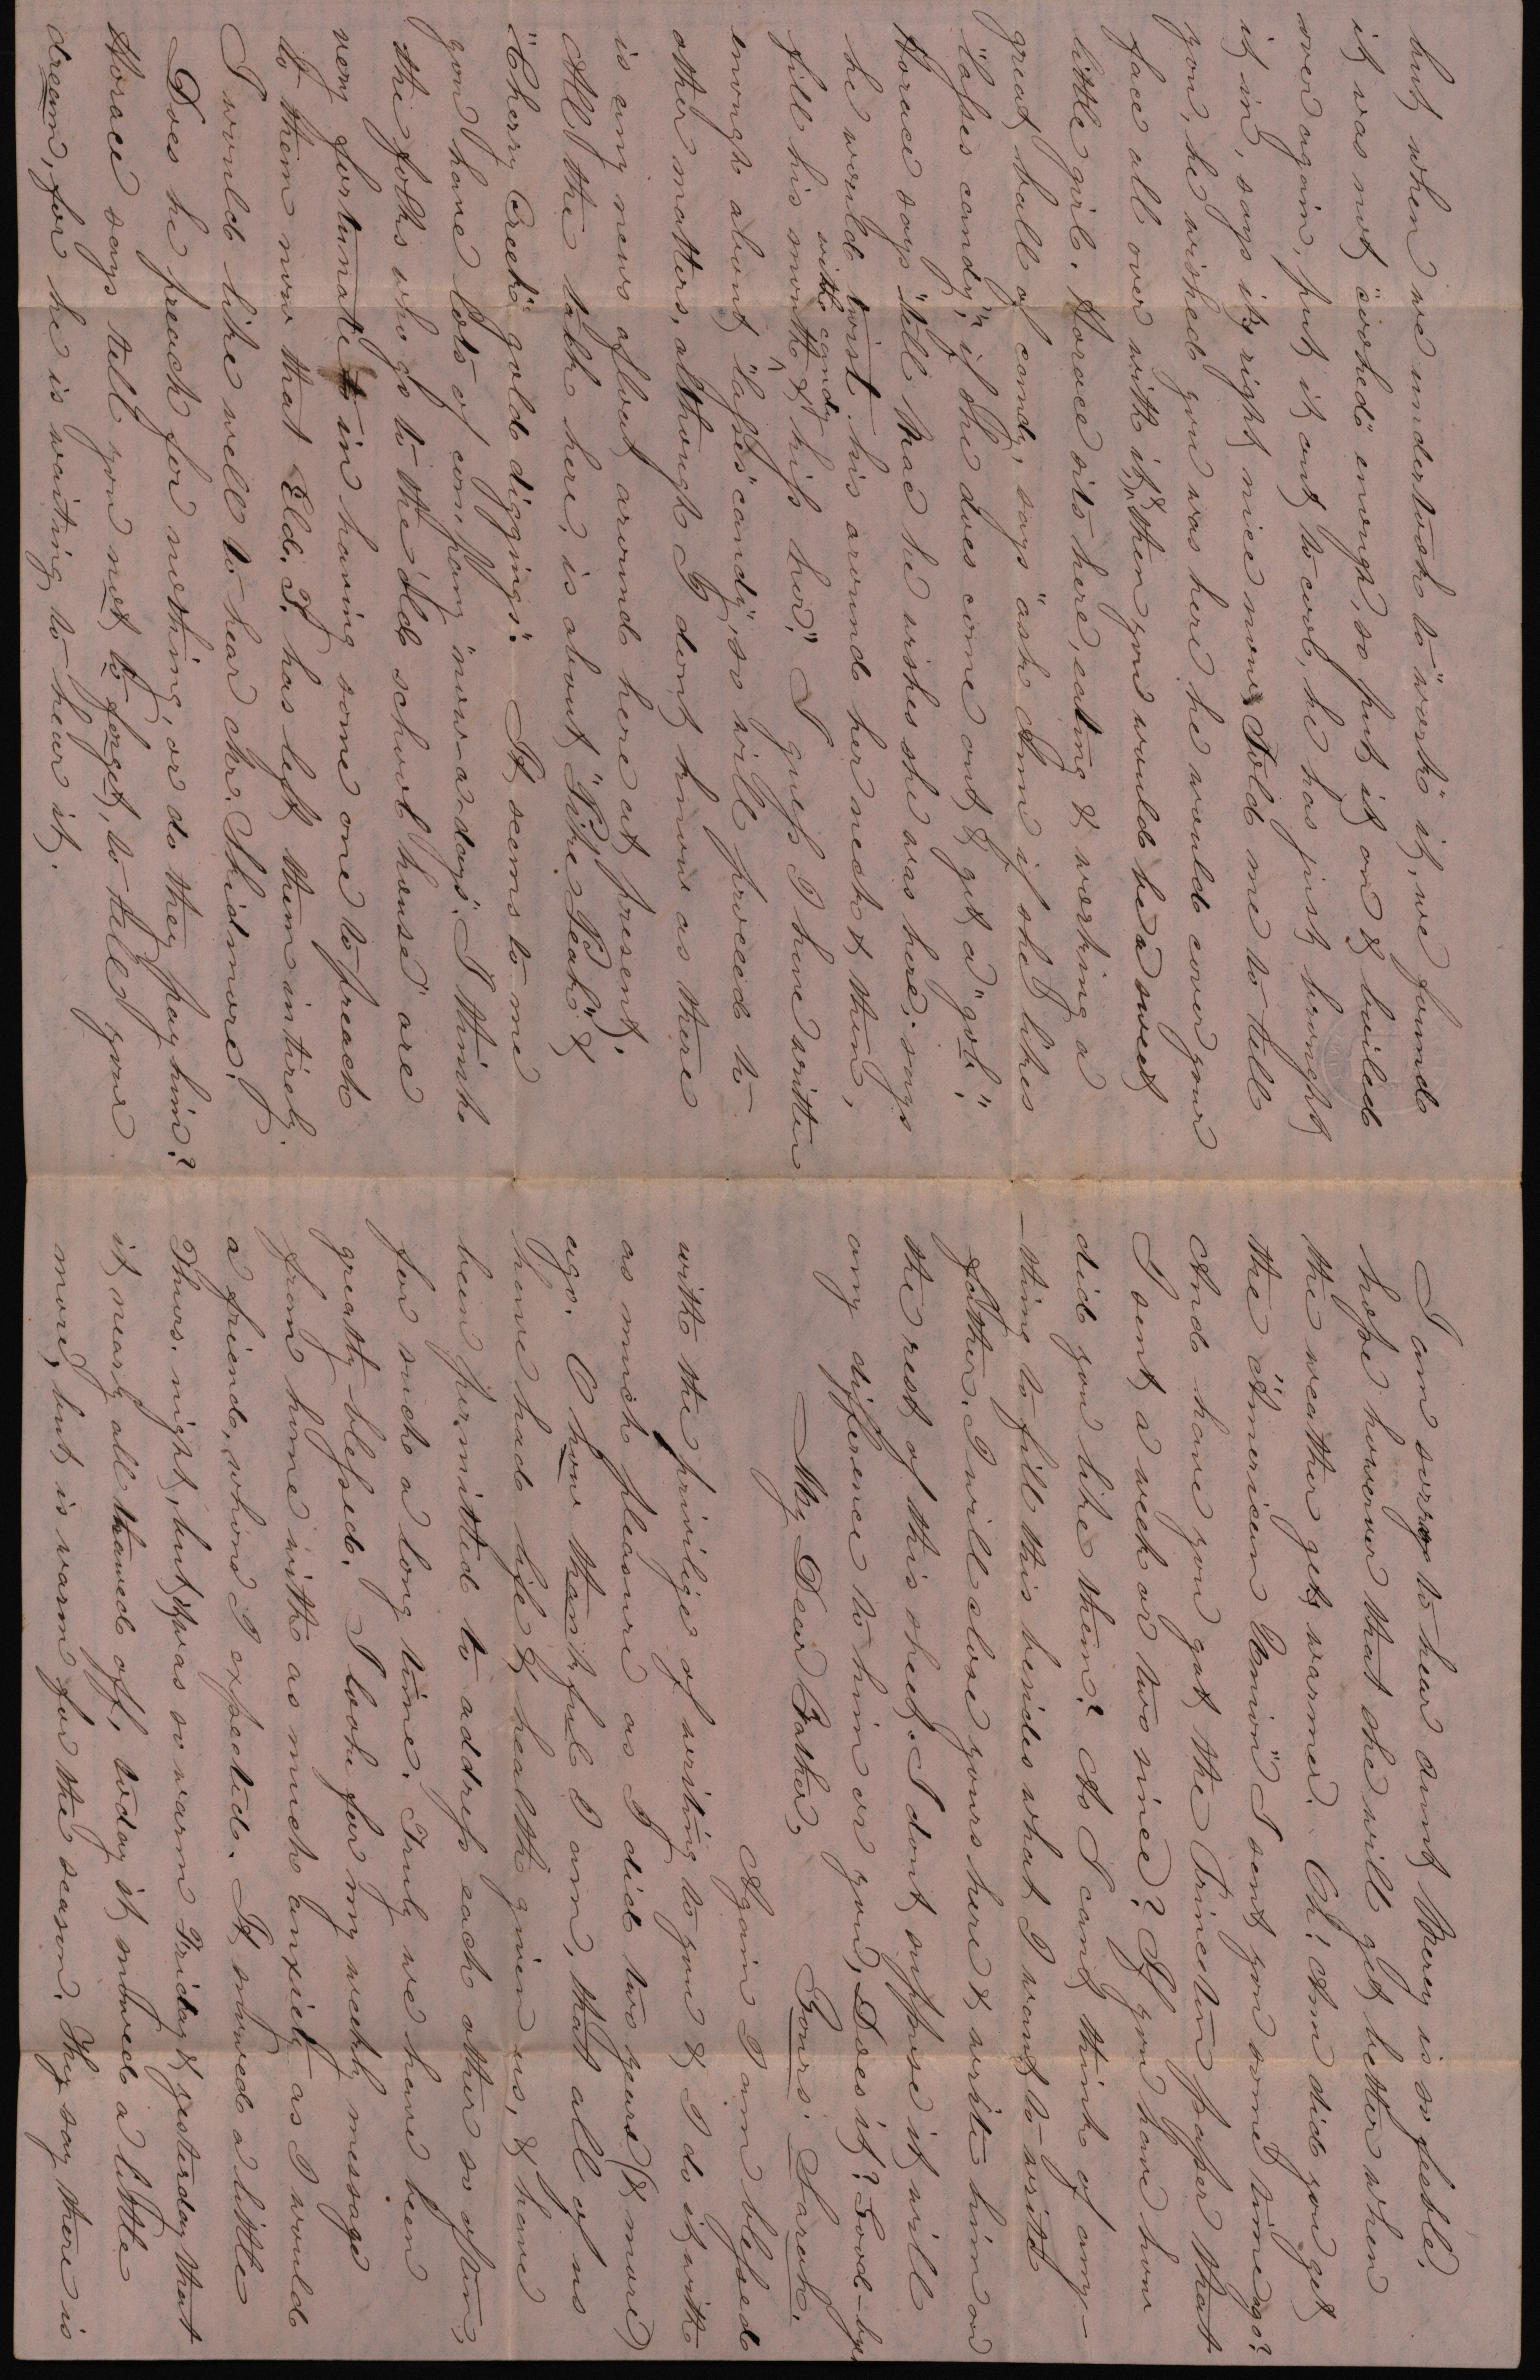 but when we undertook to "work" it, we found
it was not "cooked" enough, so put it on & boiled
over again, put it out to cool, he has just brought
it in, says its right nice now. Told me to tell
you, he wished you was here he would cover your
face all over with it, & then you would be a sweet
little girl. Horace sits here, eating & working a
great ball of candy, says "ask Am if she likes
"lasses candy," if she does come out & get a "gob".
Horace says "tell Mac he wishes she was here; says
he would twist his around her neck & then,
fill his mouth with candy & kiss her." I guess I have written
enough about "lasses" candy, so will proceed to
other matters, although I dont know as there
is any news afloat around here at present.
All the talk here, is about "Pike's Peak" &
"Cherry Creek" gold diggings". It seems to me
you have lots of company "now-a-days". I think
the folks who go to the "old school house" are
very fortunate in having some one to preach
to them now that Eld. T. has left them intirely.
I would like well to hear Mr. Skidmore.
Does he preach for nothing, or do they pay him?
Horace says tell you not to forget, to tell your
dream, for he is waiting to hear it.
I am sorry to hear aunt Mercy is so feeble.
hope however that she will get better when
the weather gets warmer. Oh! Am did you get
the "American Union" I sent you some time ago?
And have you got the Princeton paper that
I sent a week or two since? If you have how
did you like them? As I cant think of any-
-thing to fill this besides what I want to write
father. I will close yours here & write him on
the rest of this sheet. I dont suppose it will
any difference to him or you, Does it? Good-bye
Yours. Sarah.
My Dear Father,
Again I am blessed
with the privilige of writing to you & I do it with
as much pleasure as I did two years (& more)
ago. O how thankful I am, that all of us
have had life & health given us, & have
been permitted to address each other so often,
for such a long time. Truly we have been
greatly blessed. I look for my weekly message
from home with as much anxiety as I would
a friend, whom I expected. It snowed a little
Thurs. night, but 'twas so warm Friday & yesterday that
it nearly all thawed off, today it snowed a little
more, but is warm for the season. They say there is